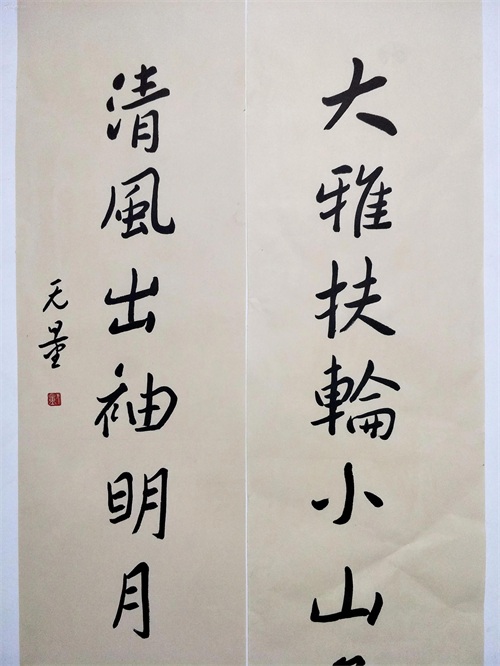 大雅扶輪小山
清風出袖明月
无量